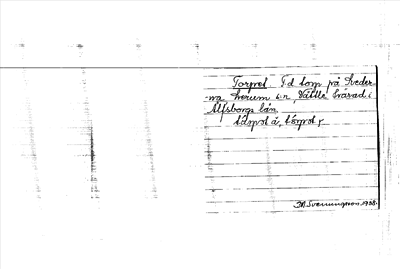 Torpet Fd torp på Sveder-
na Lerum s:n, Vättle härad i
Älfsborgs län.
tårpət å, tårpət,
M. Svenungsson 1938.